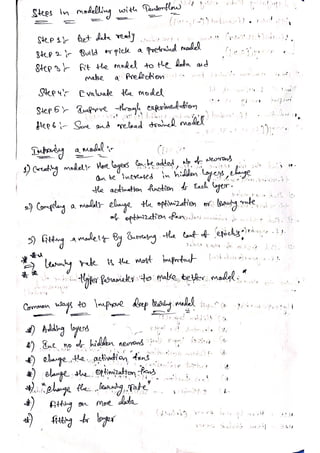 Steps in modelling with Tensorflow
Step 1 :- Get data ready
Step 2 :- Build or pick a pretrained model
Step 3 :- Fit the model to the data and
make a Prediction
Step 4 :- Evaluate the model
Step 5 :- Improve through experimentation
Step 6 :- Save and reload trained model
a model :-
1) Creating model :- More layers can be added, no of neurons
can be increased in hidden layers, change
the activation function of each layer.
2) Compiling a model :- change the optimization or learning rate
of optimization
3) Fitting a model :- By Increasing the count of epochs.
learning rate is the most important
Hyper Parameter to make better model.
Common ways to Improve deep learning model
*) Adding layers
*) Inc no of hidden neurons
*) change the activation
*) change the optimization
*) "change the learning rate"
*) Fitting on more data
*) Fitting for longer